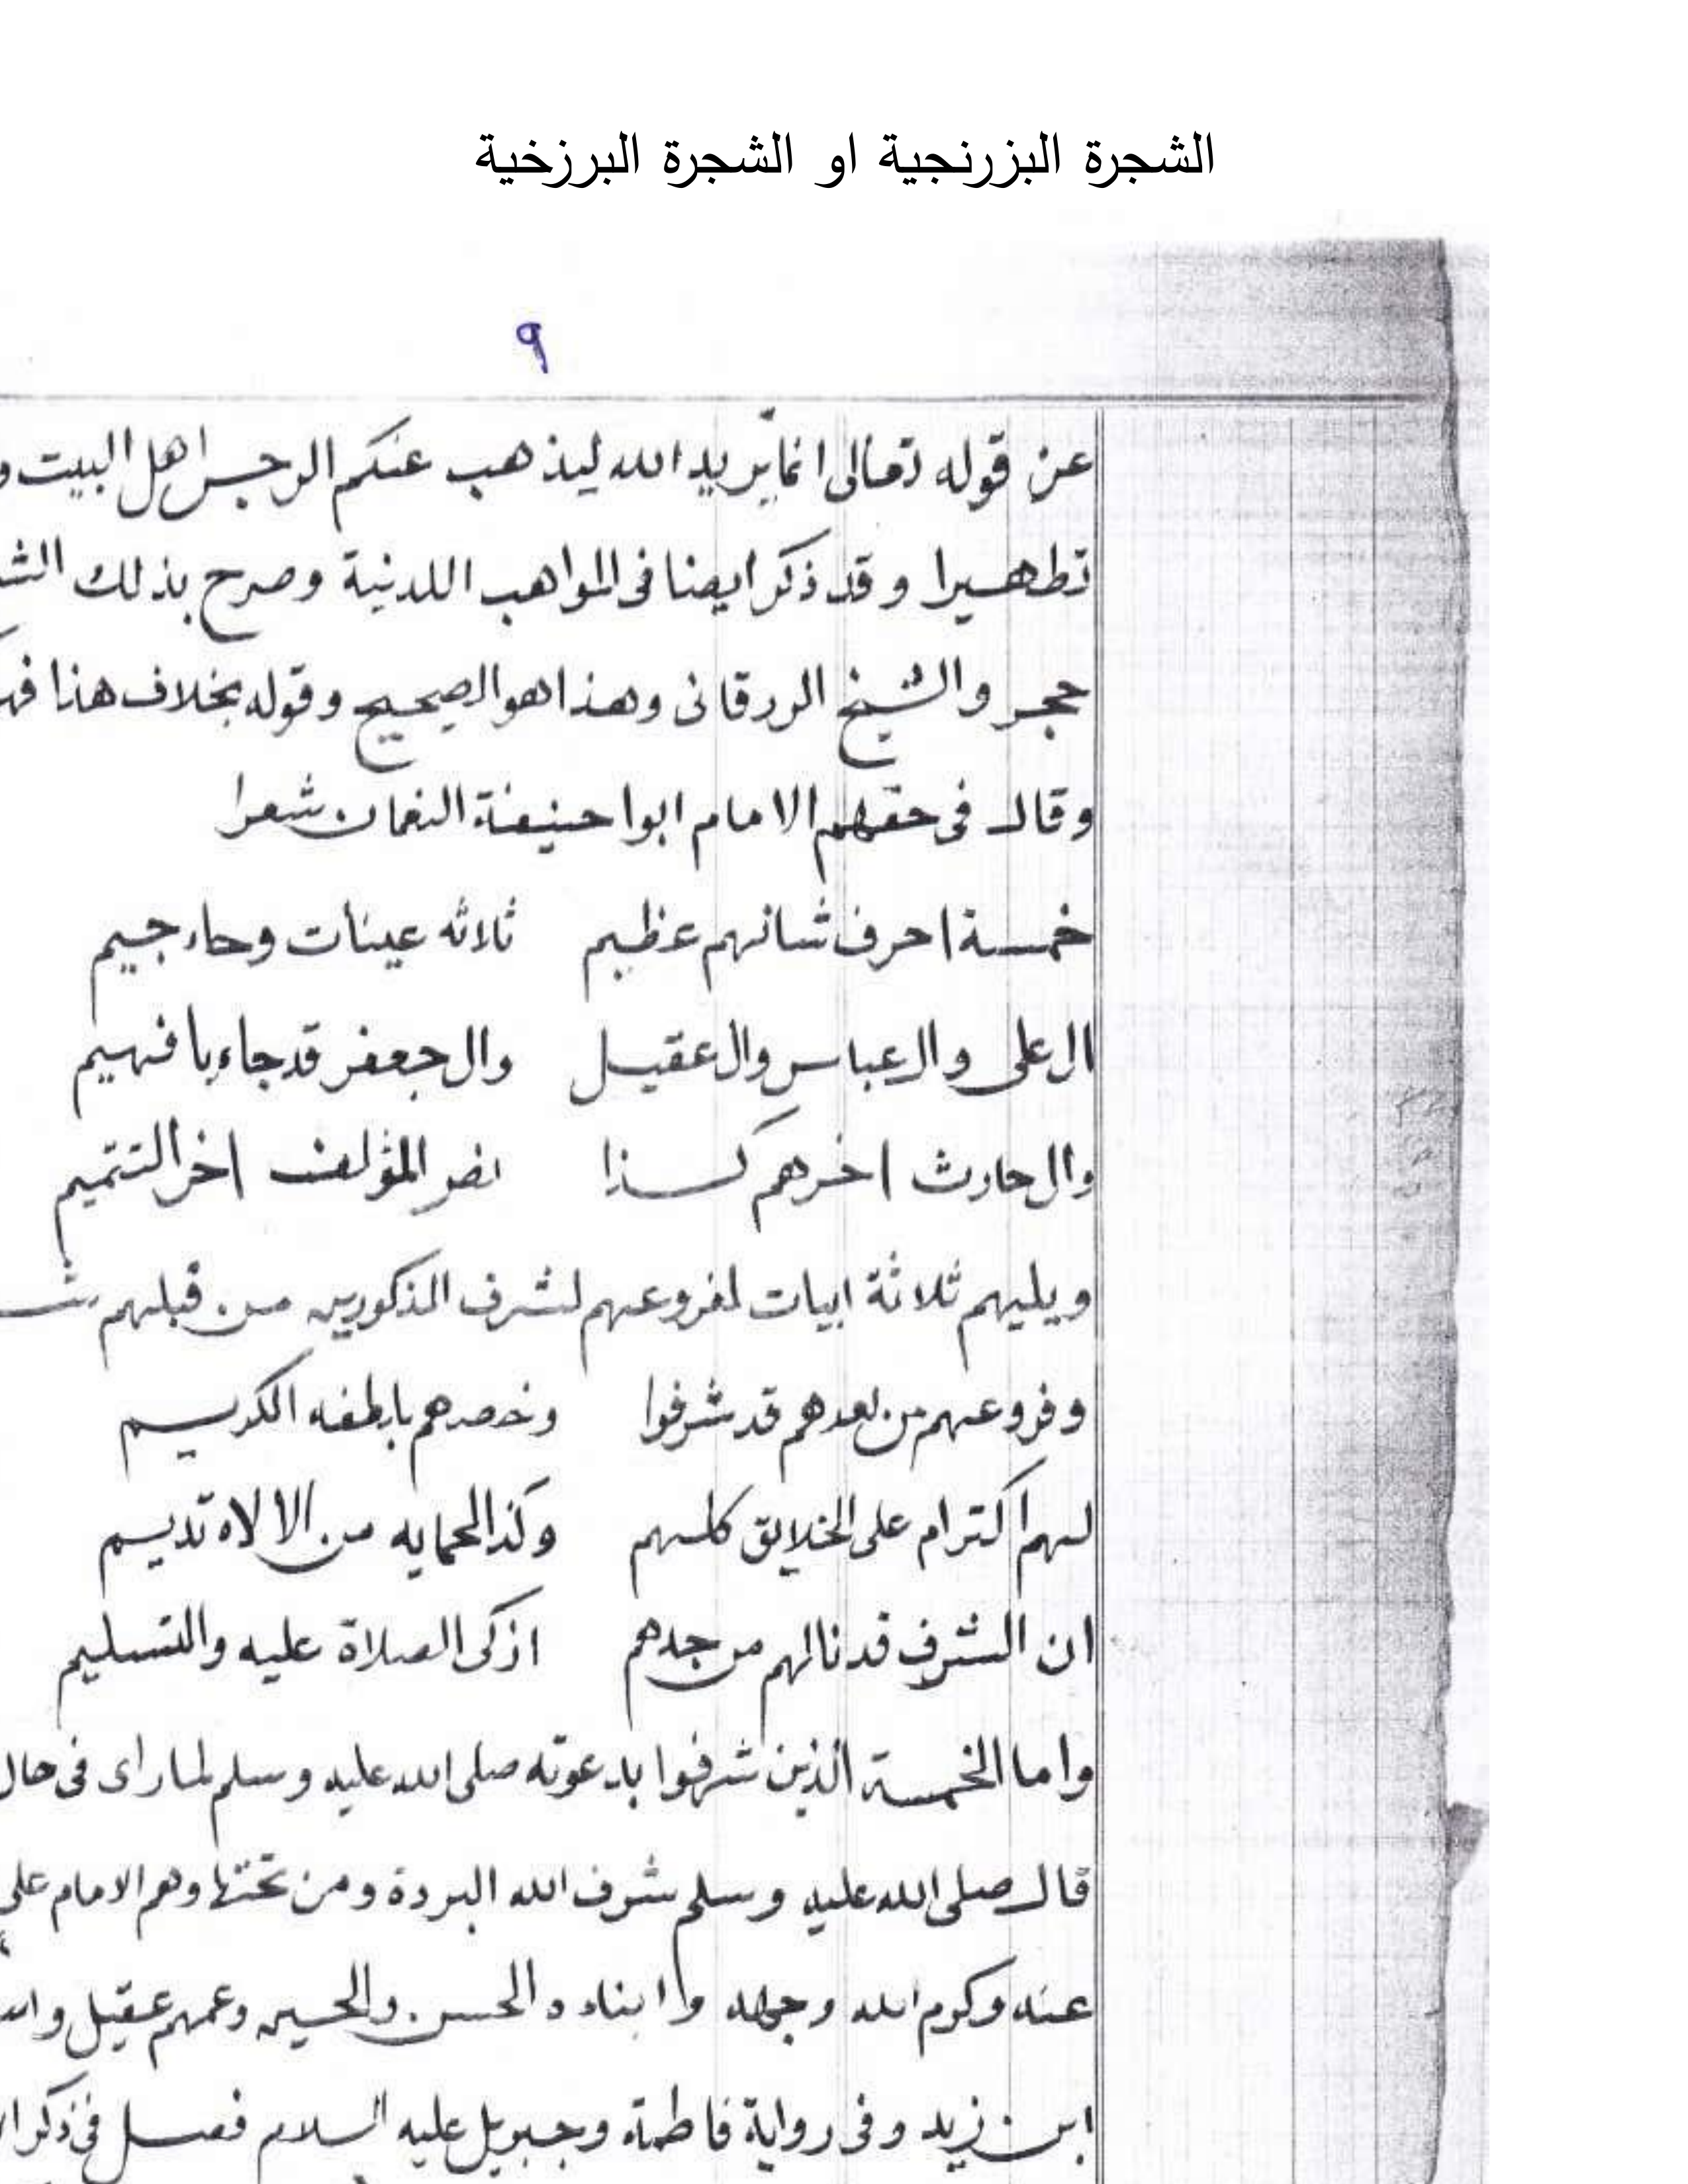 الشجرة البزرنجية او الشجرة البرزخية
٩
عن قوله تعالى انما يريد الله ليذهب عنكم الرجس اهل البيت و
تطهيرا وقد ذكر ايضا فى المواهب اللدنية وصرح بذلك
حجر والشيخ الزرقانى وهذا هو الصحيح وقوله بخلاف هذا
وقال فى حقهم الامام ابوا حنيفة النعمان شعرا
خمسة احرف شانهم عظيم ثلاثه عينات وحاء جيم
ال على وال عباس وال عقيل وال جعفر قد جاء يا فهيم
وال حارث اخرهم كذا نص المؤلف اخر التتميم
ويليهم ثلاثة ابيات لفروعهم لشرف المذكورين من قبلهم
وفروعهم من بعدهم قد شرفوا وخصهم بالطفه الكريم
لهم اكترام على الخلايق كلهم وكذا لحمايه من الالاه تديم
ان الشرف قد نالهم من جدهم ازكى الصلاة عليه والتسليم
واما الخمسة الذين شرفوا بدعوته صلى الله عليه وسلم لما راى فى حال
قال صلى الله عليه وسلم شرف الله البردة ومن تحتها وهم الامام على
عنه وكرم الله وجهه وابناءه الحسن والحسين وعمهم عقيل
ابن زيد وفى رواية فاطمة وجبريل عليه السلام فصل فى ذكر